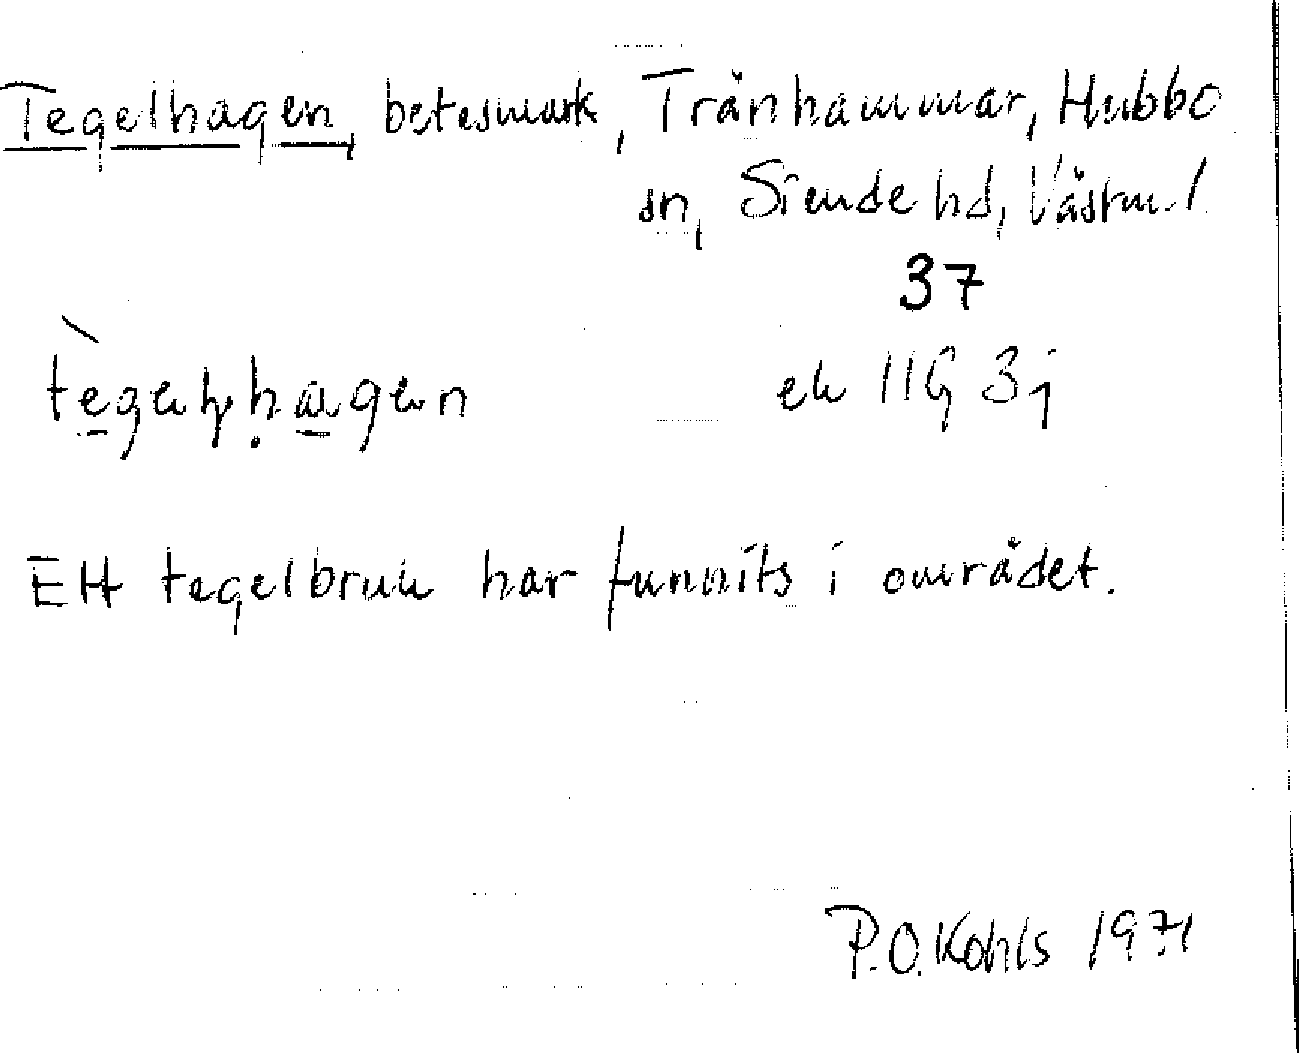 Tegelhagen, betesmark, Trånhammar, Hubbo
sn, Siende hd, Västml.
37
ek 11G 3j
Ett tegelbruk har funnits i området.
P.O. Kohls 1971